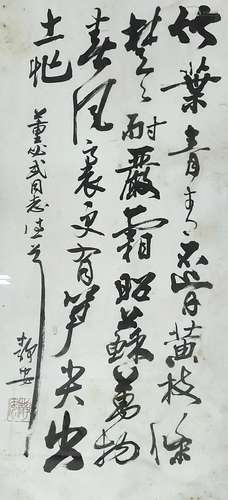 竹葉青青不肯黄枝條
楚楚耐嚴霜昭蘇萬物
春风裏更有笋尖出
土忙
董必武同志
静安